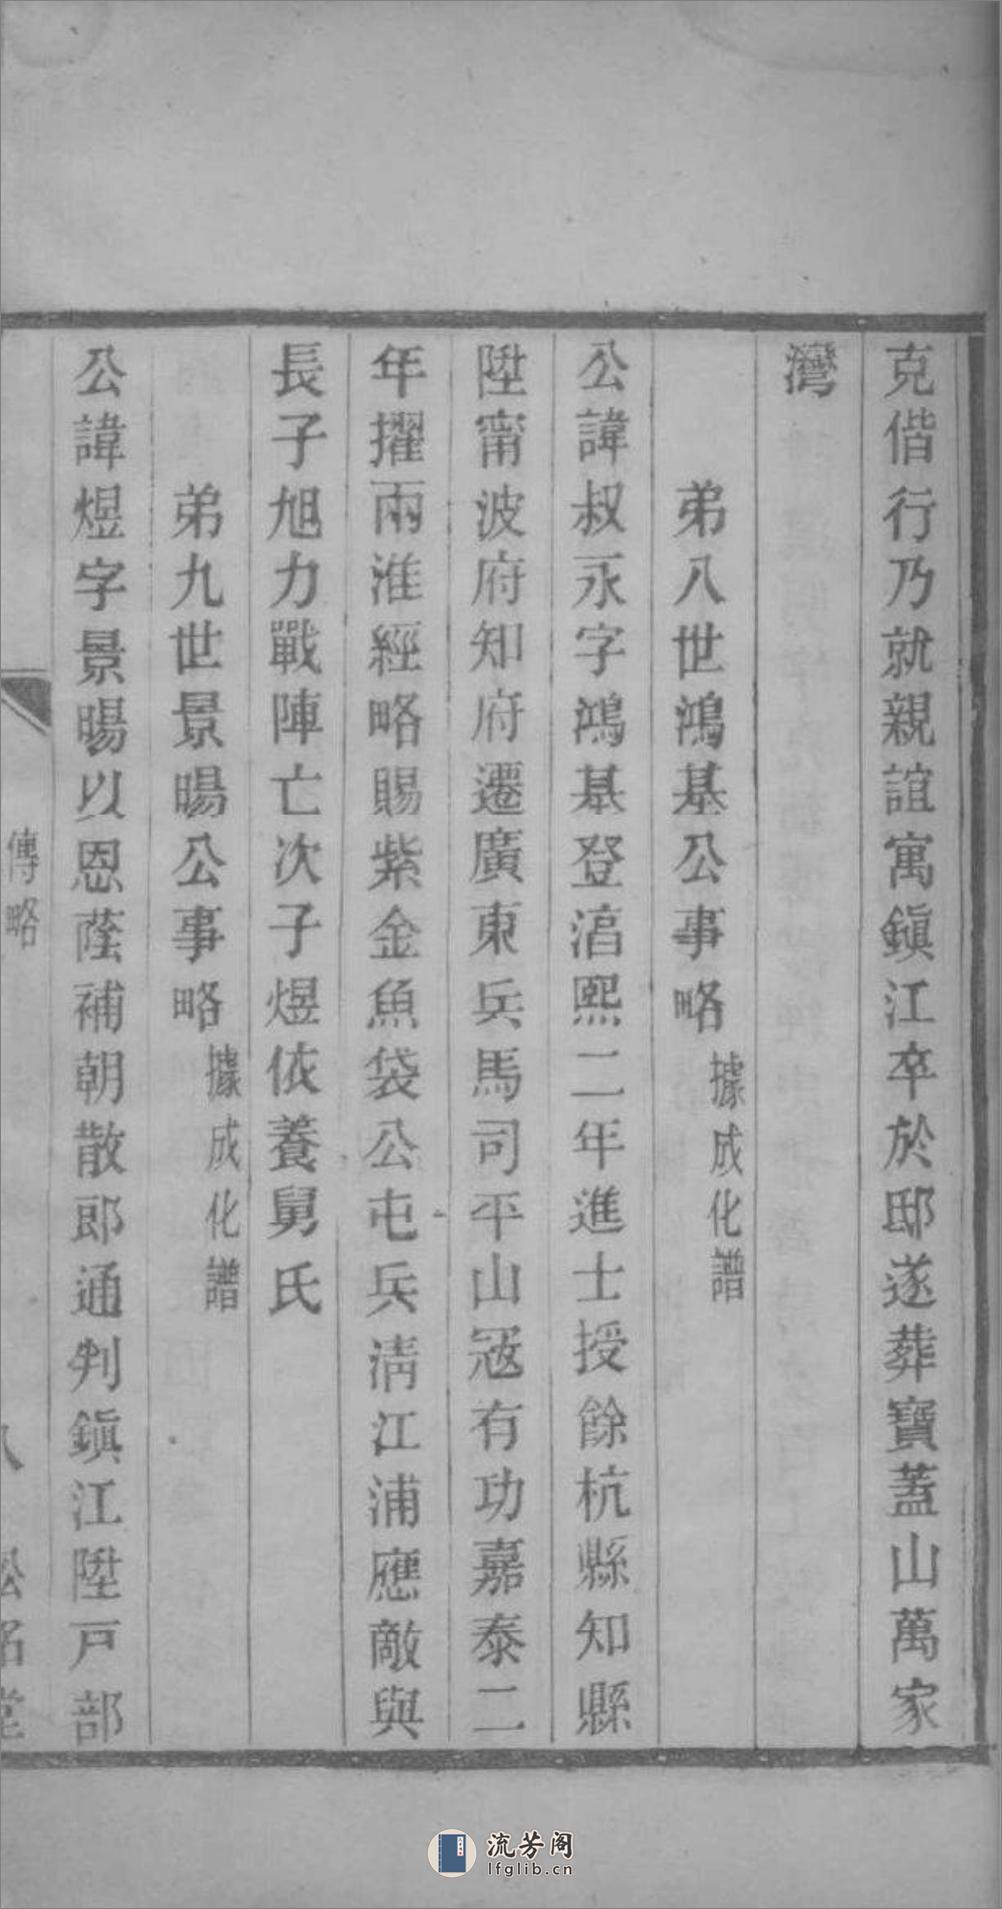 克偕行乃就親誼寓鎮江卒於邸遂葬寶蓋山萬家
灣
弟八世鴻基公事略 據成化譜
公諱叔永字鴻基登湻熙二年進士授餘杭縣知縣
陞甯波府知府遷廣東兵馬司平山冦有功嘉泰二
年擢兩淮經略賜紫金魚袋公屯兵淸江浦應敵與
長子旭力戰陣亡次子煜依養舅氏
弟九世景暘公事略 據成化譜
公諱煜字景暘以恩蔭補朝散郎通判鎮江陞戸部
傳略
八
流芳阁
lfglib.cn